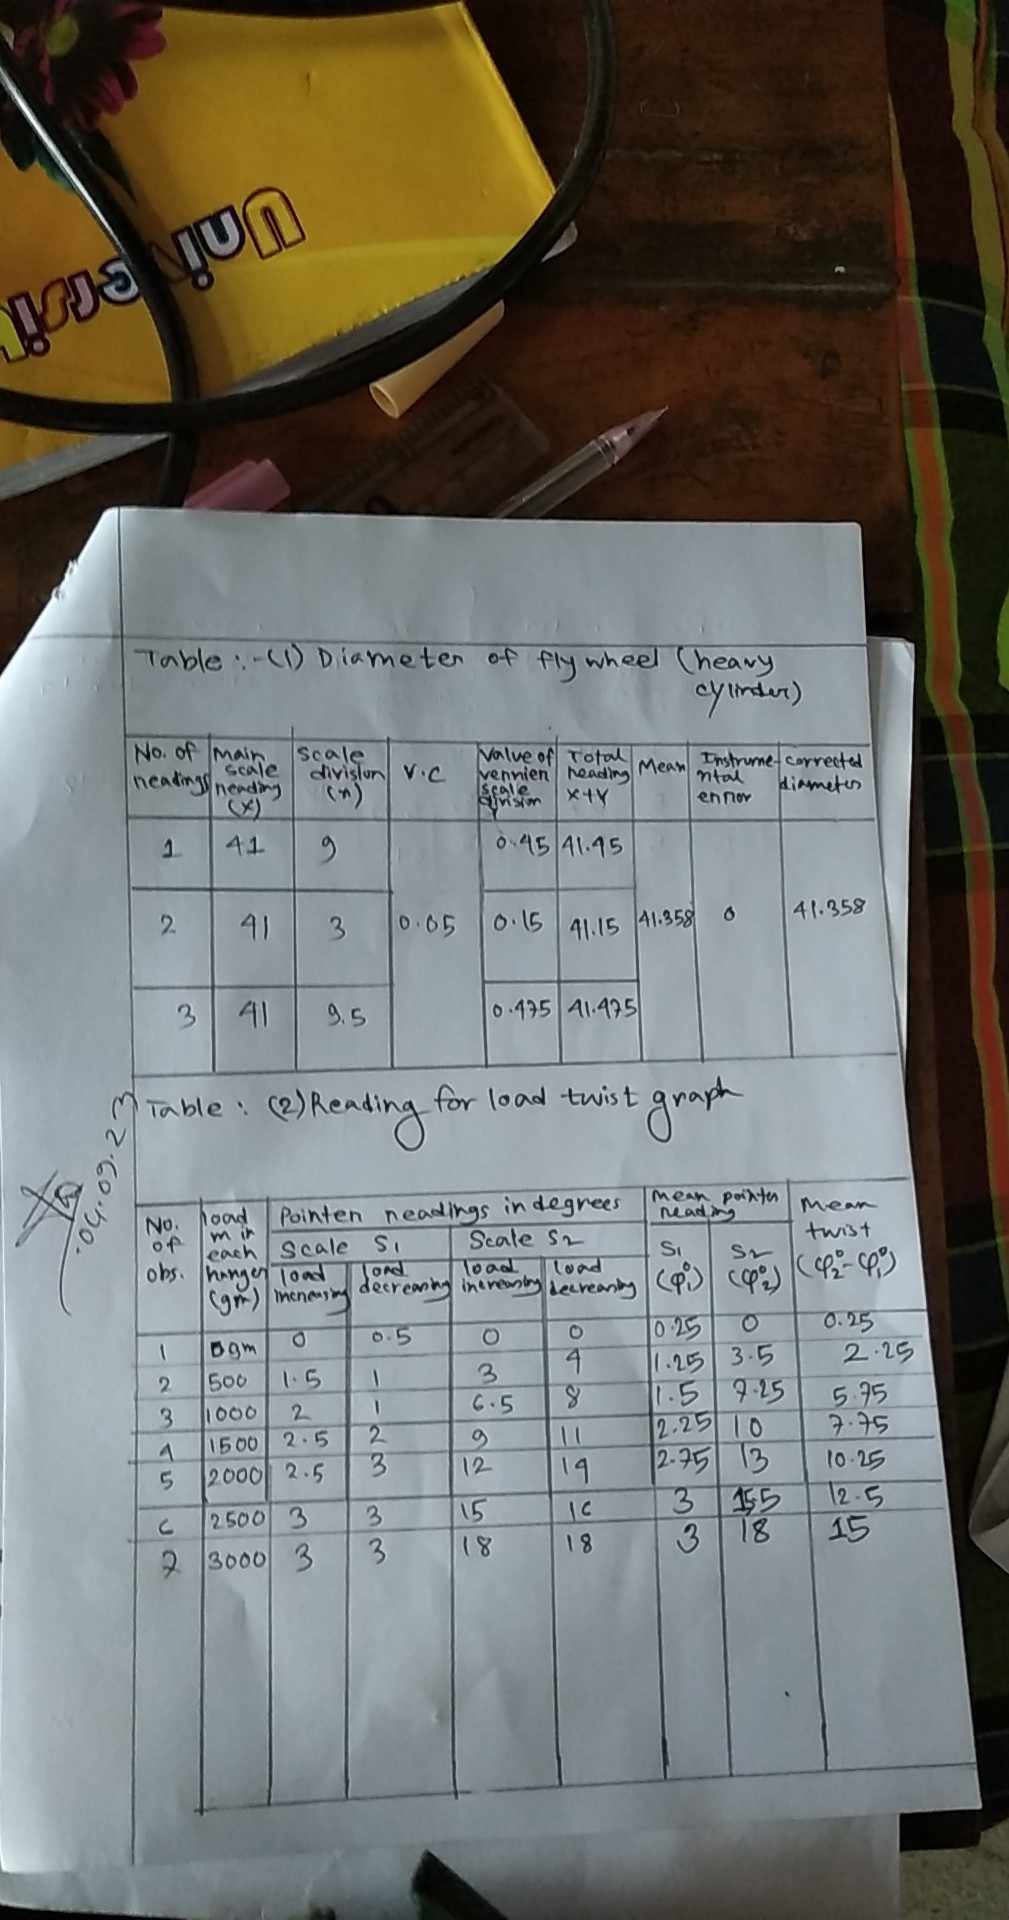 Universi
Table :-(1) Diameter of fly wheel (heavy
cylinder)
No. of readings | Main scale reading (x) | Scale division (n) | V.C | Value of vernier scale division Y | Total reading x+Y | Mean | Instrumental error | corrected diameter
1 | 41 | 9 | 0.45 | 41.45
2 | 41 | 3 | 0.05 | 0.15 | 41.15 | 41.358 | 0 | 41.358
3 | 41 | 9.5 | 0.475 | 41.475
Table : (2) Reading for load twist graph
04.09.23
No. of obs. | load m in each hanger (gm) | Pointer readings in degrees | Mean pointer reading | Mean twist (φ₂°-φ₁°)
Scale S₁ | Scale S₂ | S₁ (φ₁°) | S₂ (φ₂°)
load increasing | load decreasing | load increasing | load decreasing
1 | 0gm | 0 | 0.5 | 0 | 0 | 0.25 | 0 | 0.25
2 | 500 | 1.5 | 1 | 3 | 4 | 1.25 | 3.5 | 2.25
3 | 1000 | 2 | 1 | 6.5 | 8 | 1.5 | 7.25 | 5.75
4 | 1500 | 2.5 | 2 | 9 | 11 | 2.25 | 10 | 7.75
5 | 2000 | 2.5 | 3 | 12 | 14 | 2.75 | 13 | 10.25
6 | 2500 | 3 | 3 | 15 | 16 | 3 | 15.5 | 12.5
7 | 3000 | 3 | 3 | 18 | 18 | 3 | 18 | 15